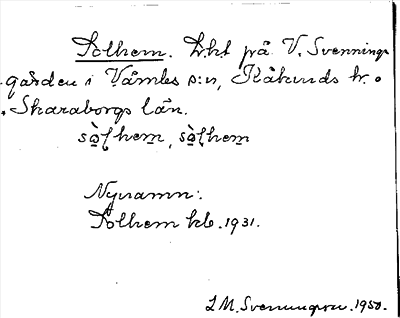 Solhem. Lht på V. Svennings-
gården i Våmbs s:n, Kåkinds hd.
Skaraborgs län.
sò̱lhem, sò̱lhem
Nynamn:
Solhem kb. 1931.
L M. Svenungson. 1950.